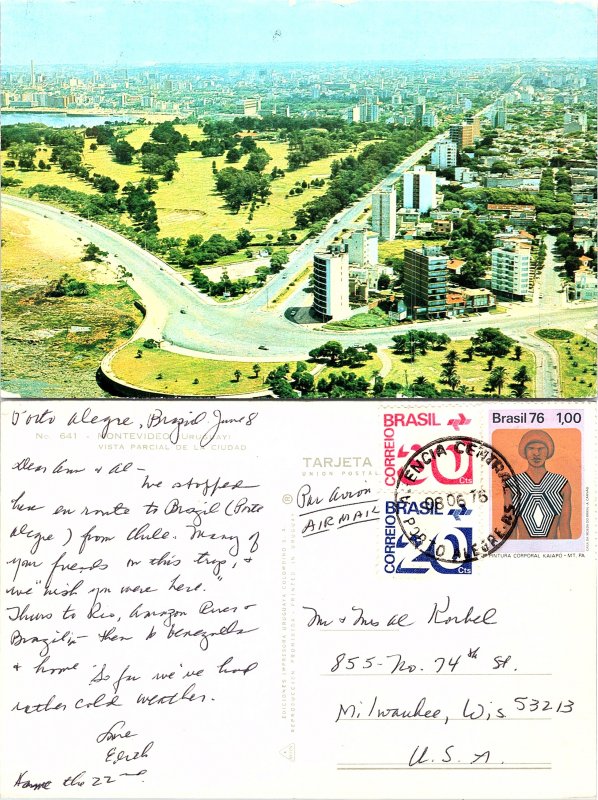 Porto Alegre, Brazil June 8
No. 641 - MONTEVIDEO (URUGUAY)
VISTA PARCIAL DE LA CIUDAD
Dear Ann & Al -
We stopped
here en route to Brazil (Porto
Alegre) from Chile. Many of
your friends on this trip, &
we "wish you were here."
Thurs to Rio, Amazon River &
Brazilia then to Venezuela
& home So far we've had
rather cold weather.
Love
Edith
Home the 22nd
TARJETA
UNION POSTAL
Par Avion
AIR MAIL
EDICIONES IMPRESORA URUGUAYA COLOMBINO S. A.
REPRODUCCION PROHIBIDA - PRINTED IN URUGUAY
BRASIL
CORREIO
20 Cts
BRASIL
CORREIO
20 Cts
AGENCIA CENTRAL
08 06 76
PORTO ALEGRE RS
Brasil 76 1,00
PINTURA CORPORAL KAIAPO - MT. PA
Mr & Mrs Al Korbel
855-No. 74th St.
Milwaukee, Wis 53213
U.S.A.